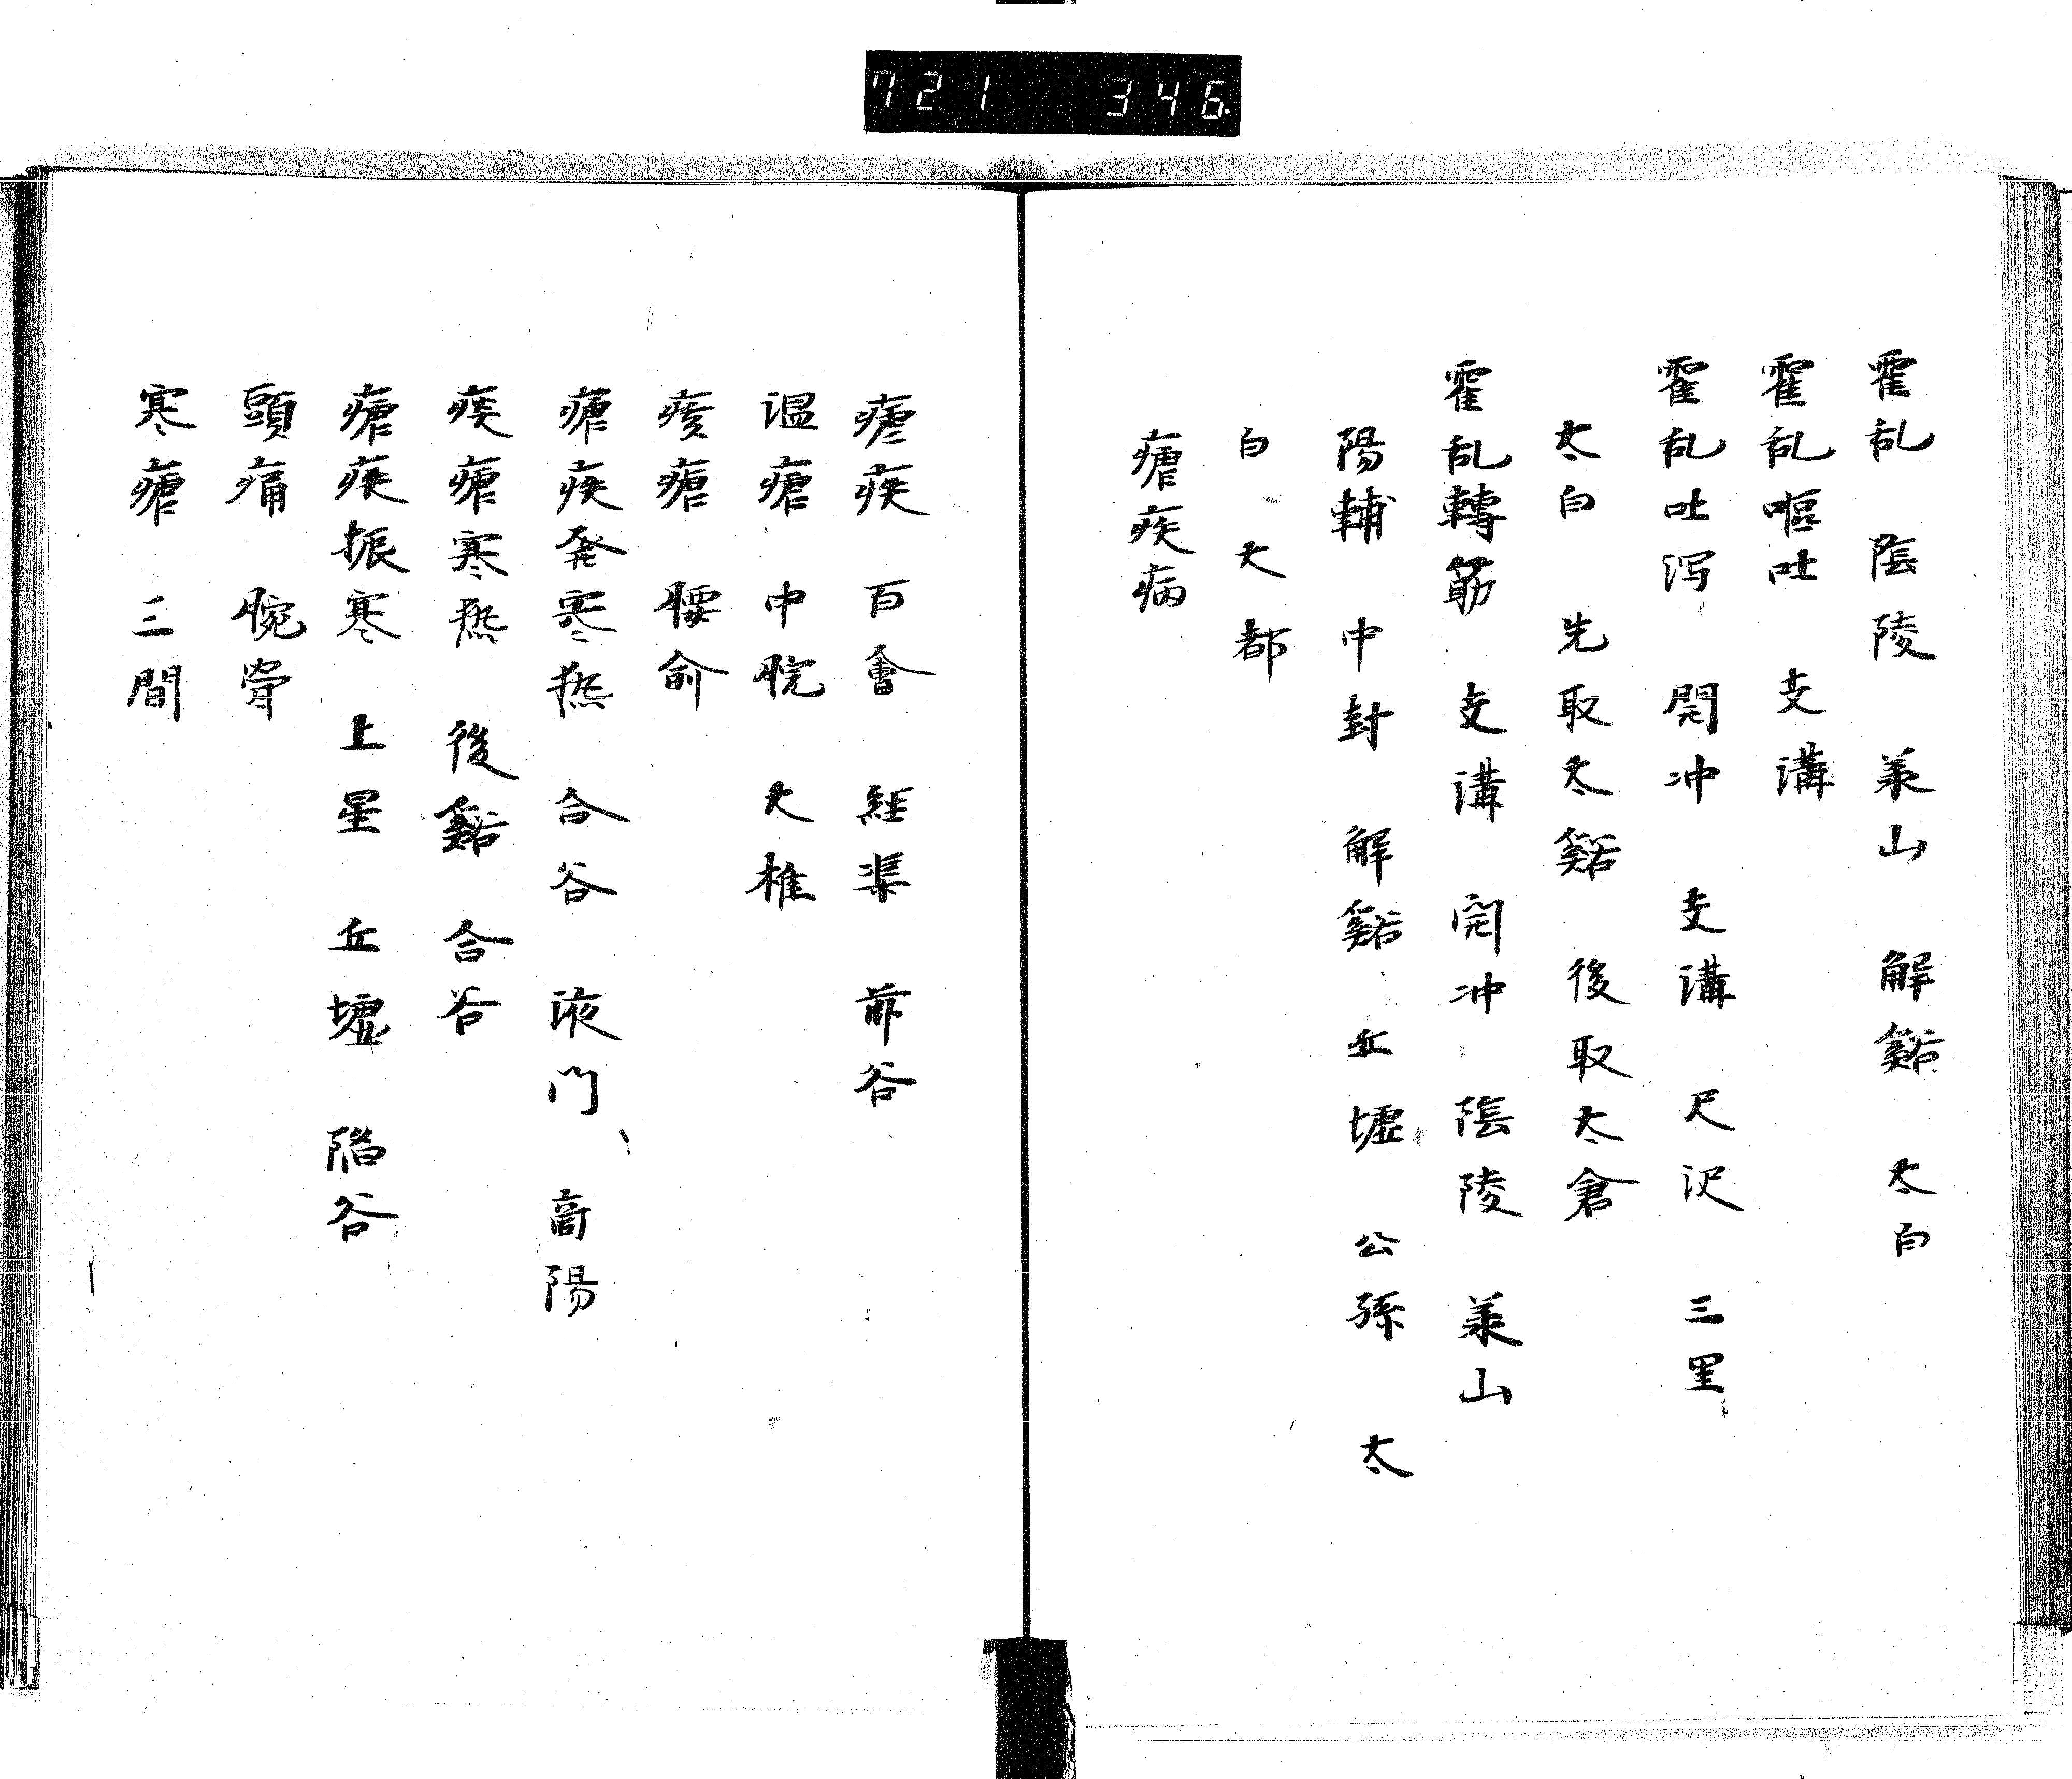 721 346
霍乱 陰陵 承山 解谿 太白
霍乱嘔吐 支溝
霍乱吐泻 関冲 支溝 尺沢 三里
太白 先取太谿 後取太倉
霍乱轉筋 支溝 関冲 陰陵 承山
陽輔 中封 解谿 丘墟 公孫 太
白 大都
瘧疾病
瘧疾 百會 経渠 前谷
温瘧 中脘 大椎
痎瘧 腰俞
瘧疾発寒热 合谷 液門 商陽
痎瘧寒热 後谿 合谷
瘧疾振寒 上星 丘墟 陥谷
頭痛 腕骨
寒瘧 三間